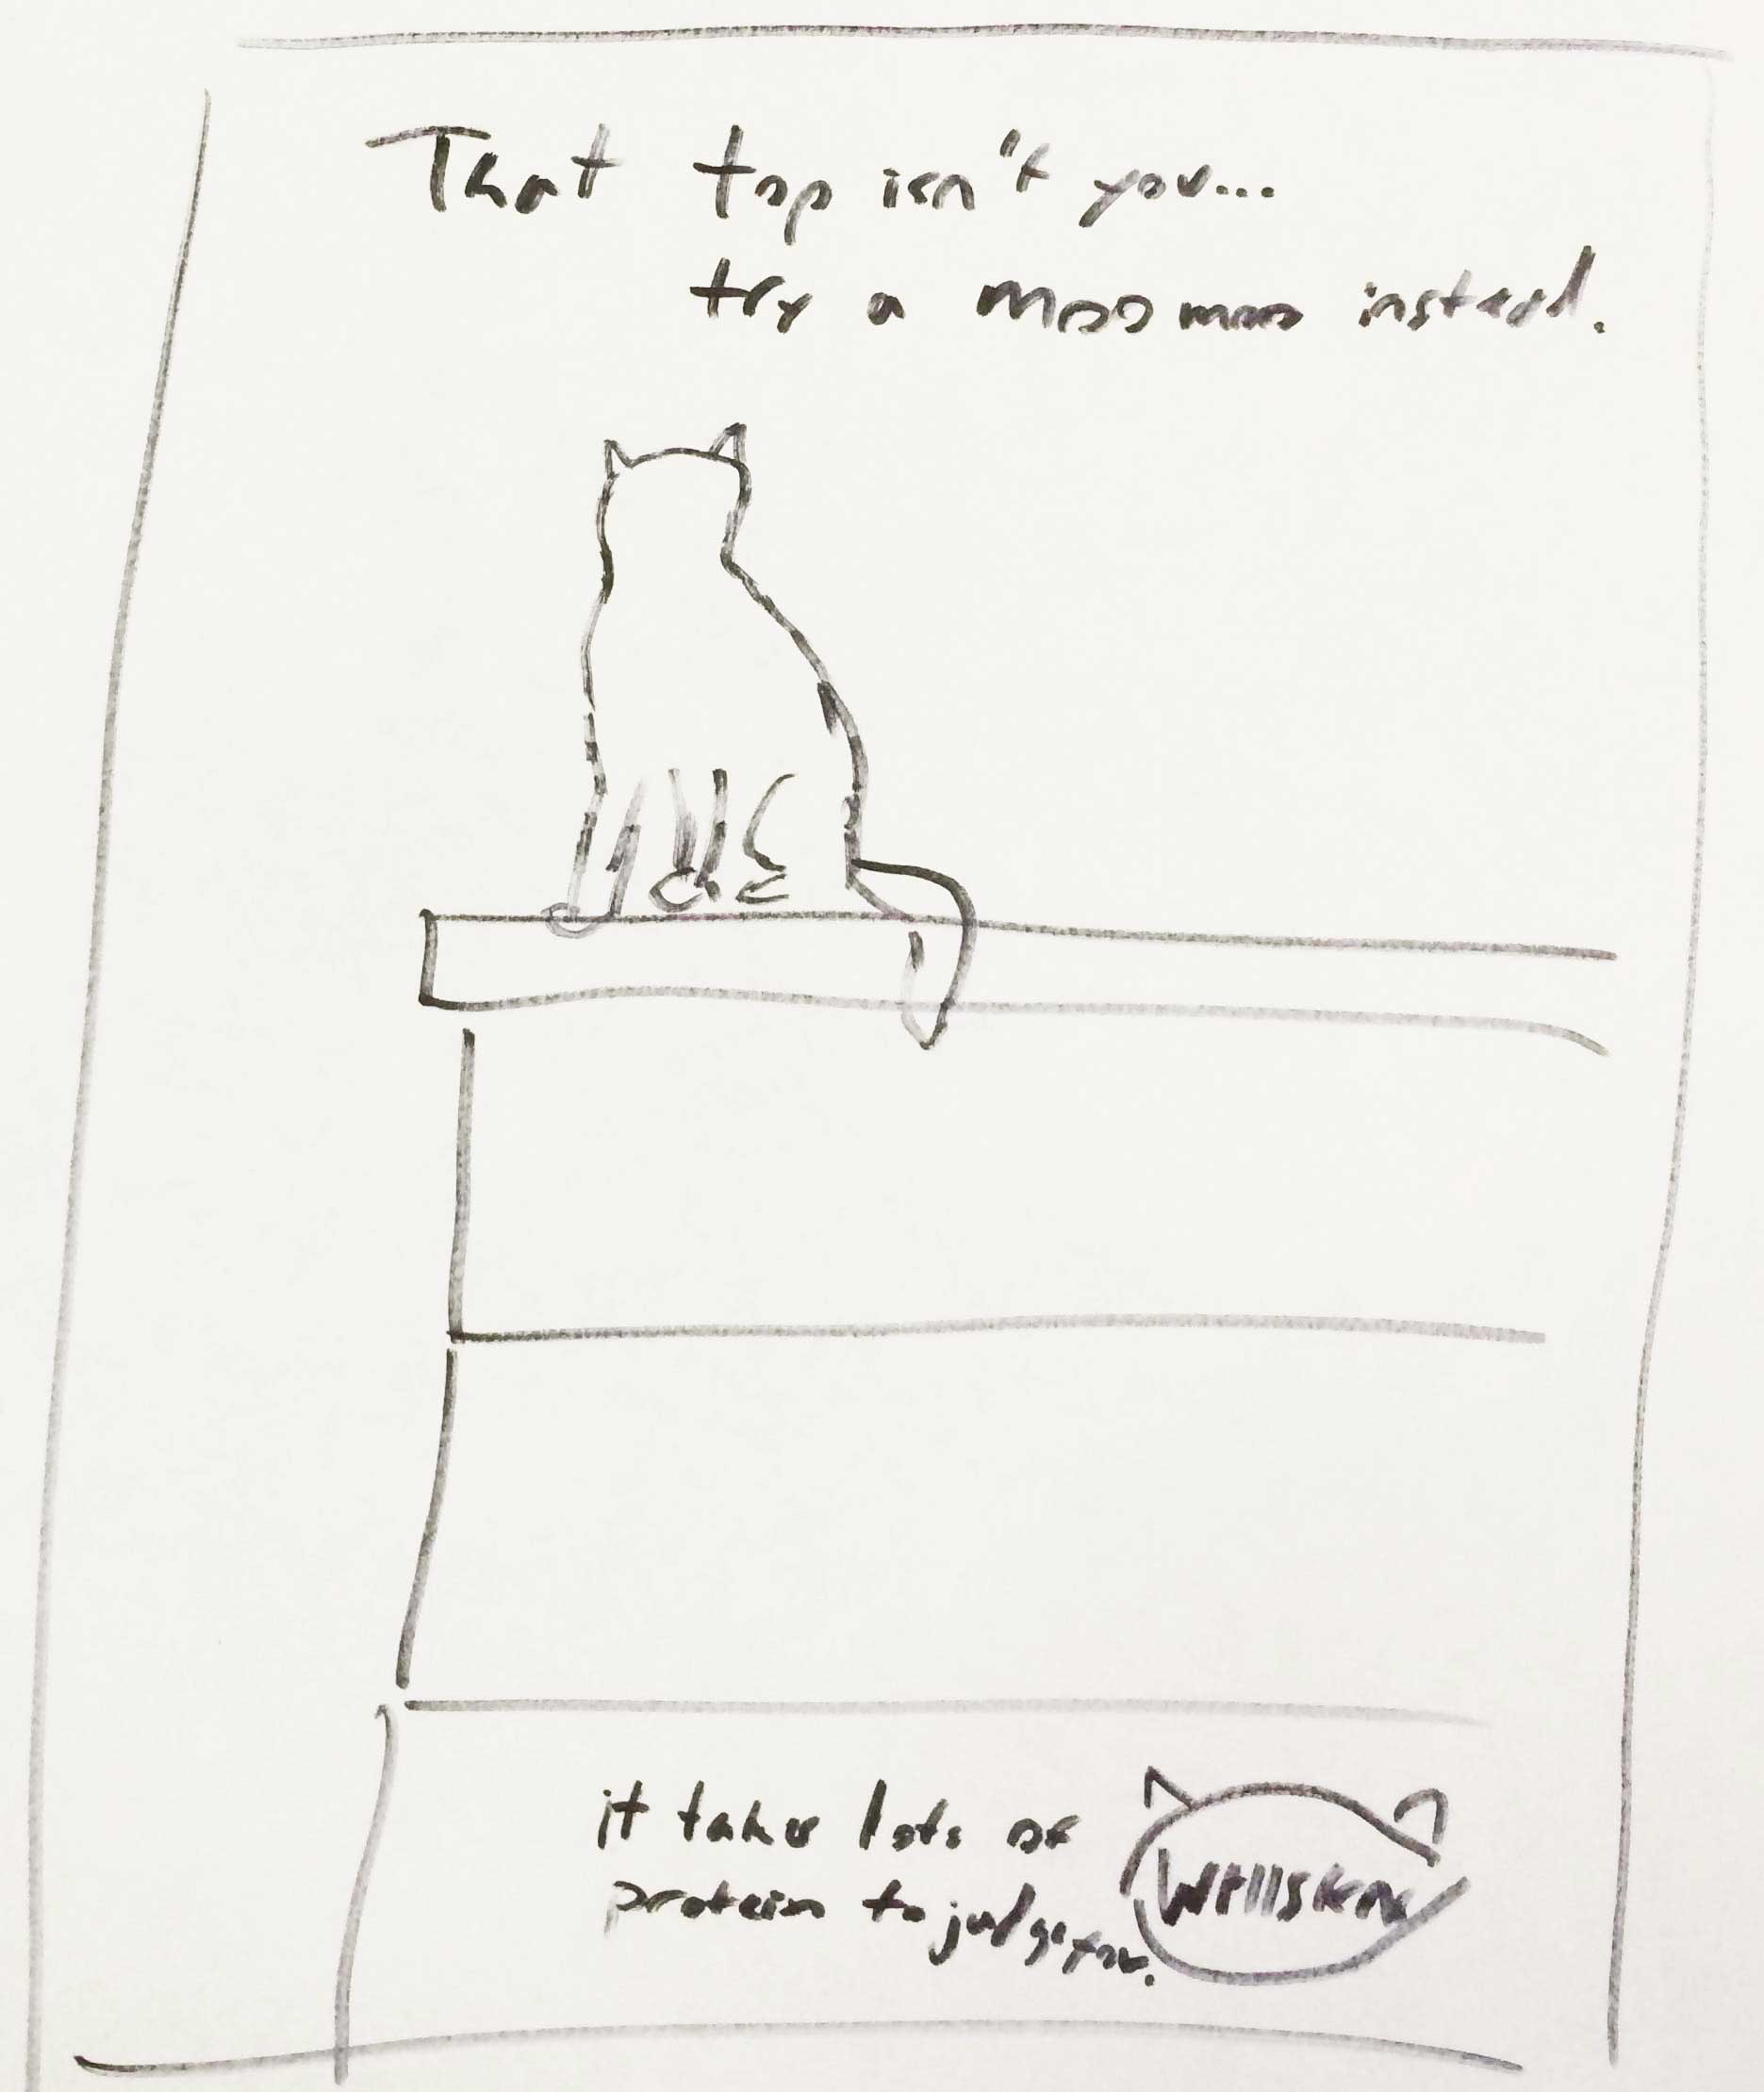 That top isn't you...
try a moo moo instead.
it takes lots of
protein to judge you.
WHISKAS